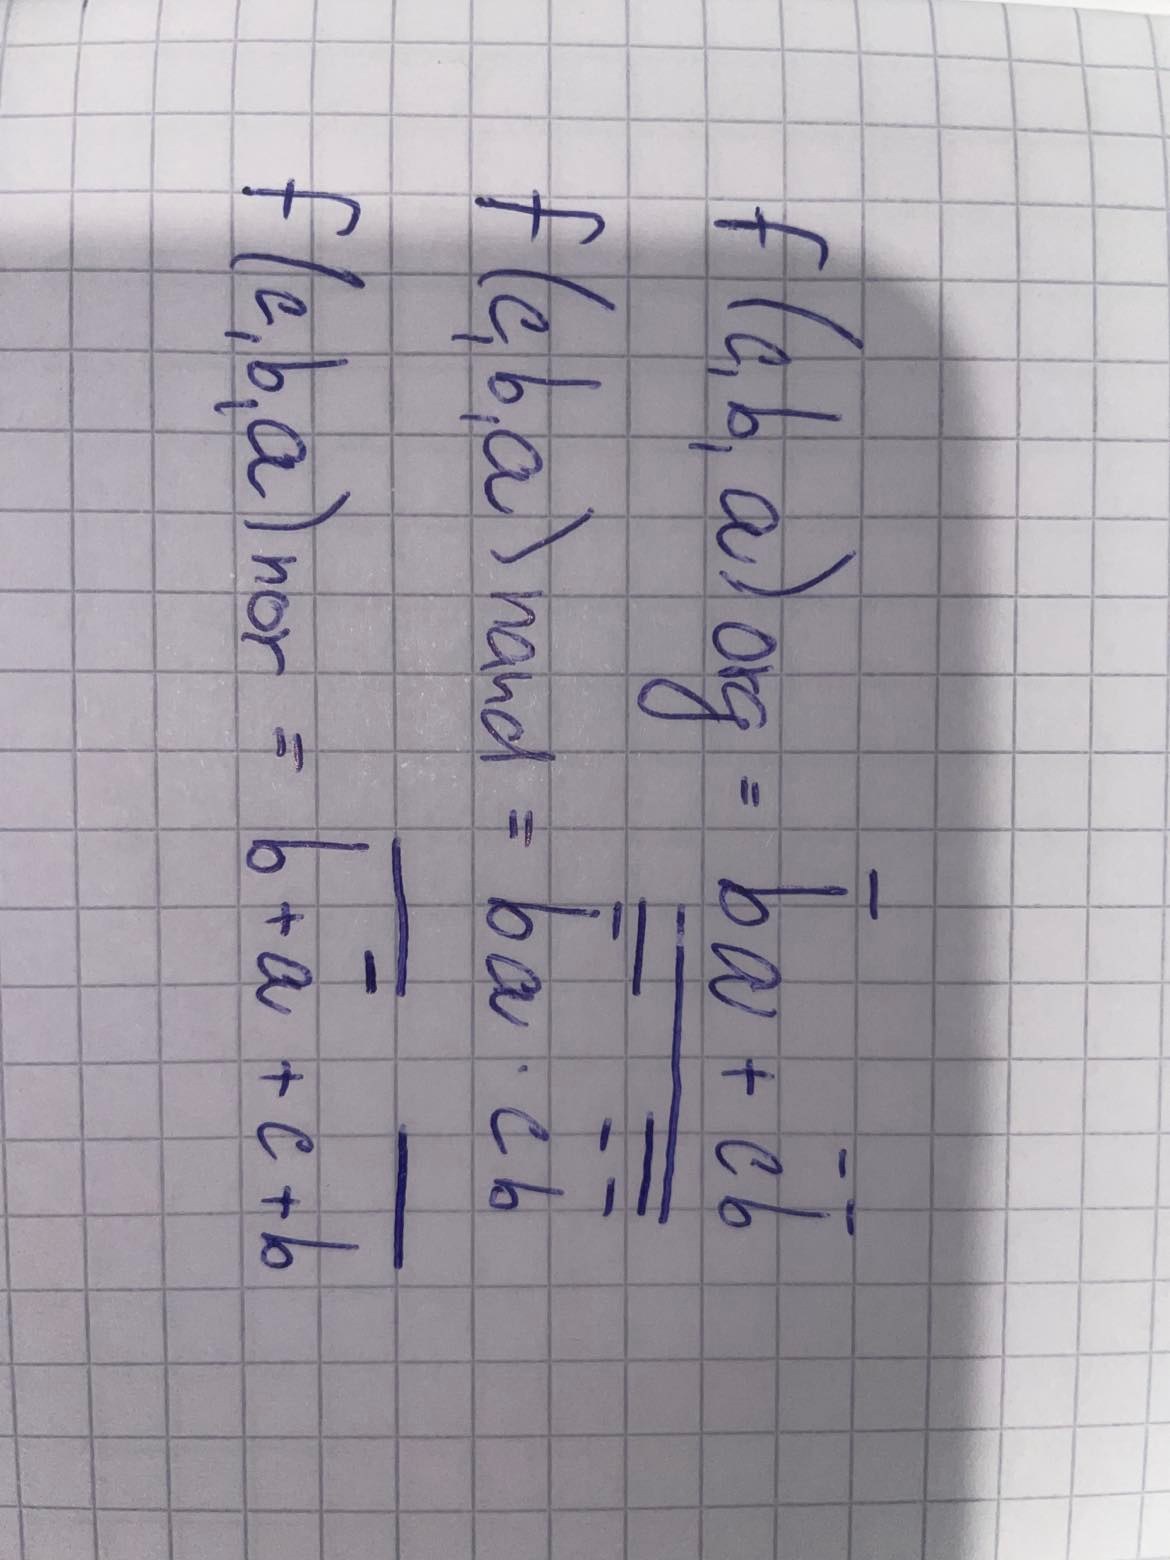 f(c,b,a)org = b̅a + c̅b̅
f(c,b,a)nand = \overline{\overline{\overline{\overline{b}a}} · \overline{\overline{\overline{c}\overline{b}}}}
f(c,b,a)nor = \overline{b+\overline{a}} + \overline{c+b}